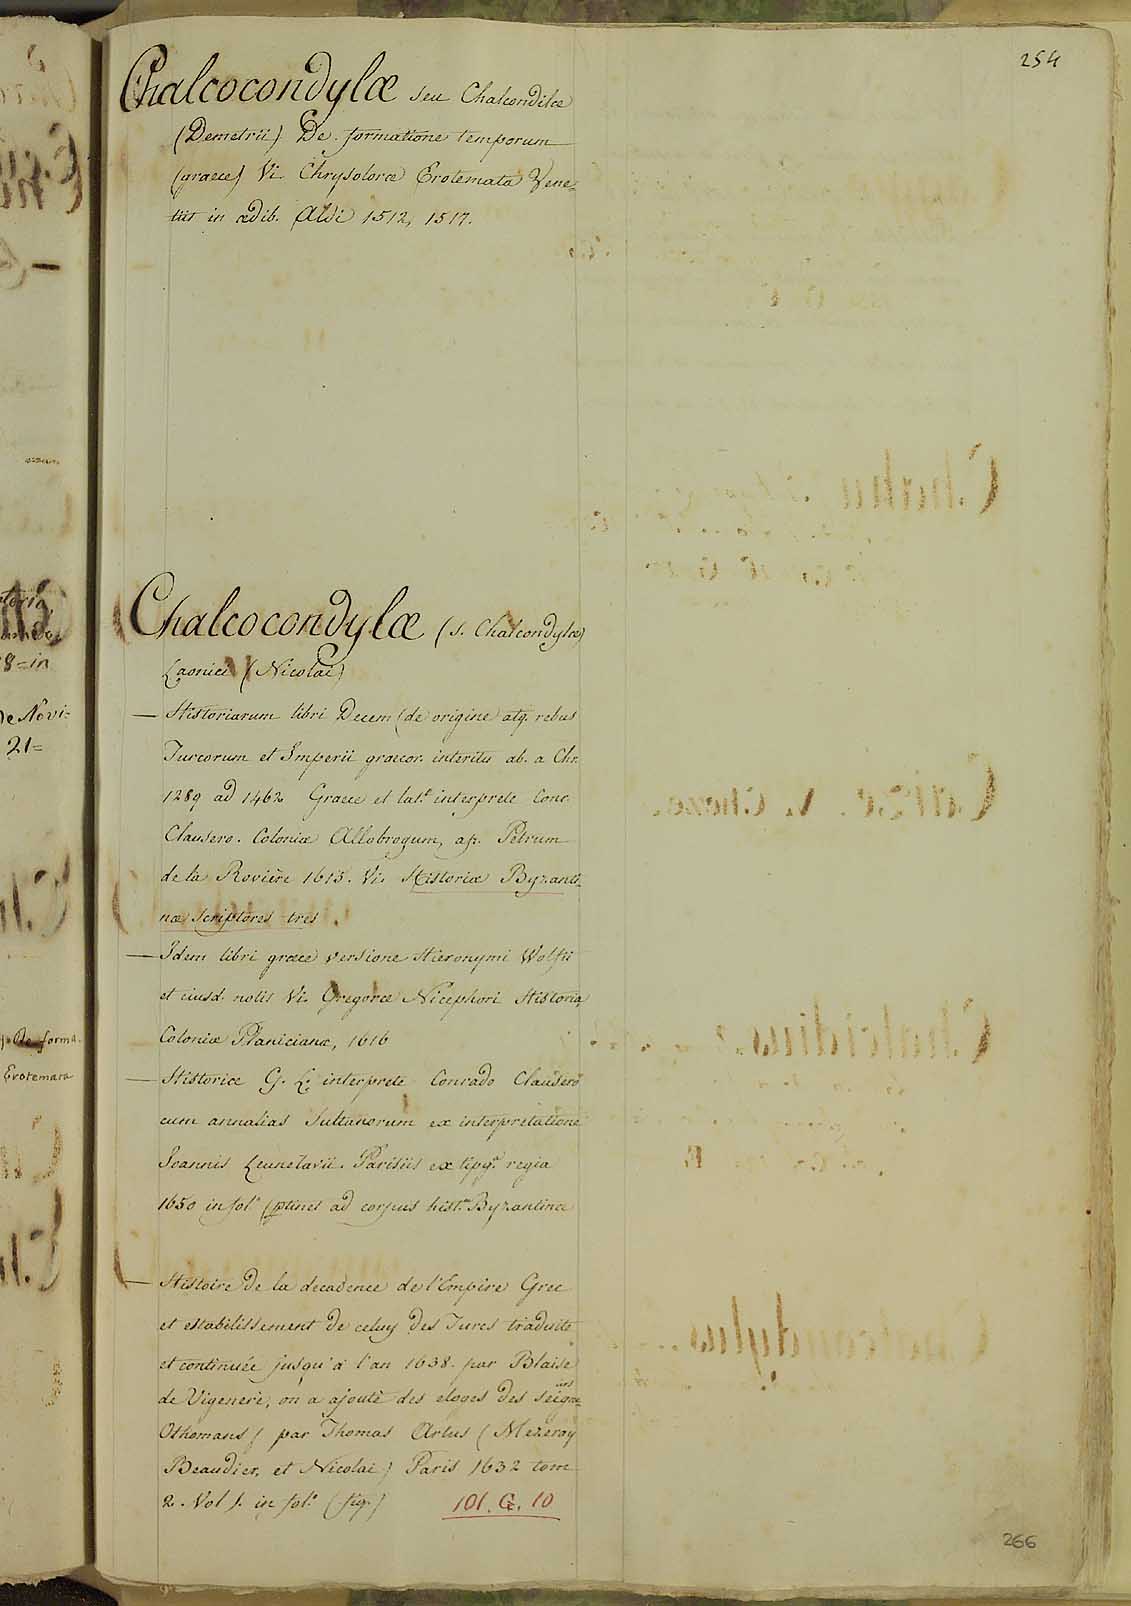 254
Chalcocondylæ seu Chalcondilæ
(Demetrii) De formatione temporum
(graece) Vi. Chrysoloræ Erotemata Vene-
tiis in ædib. Aldi 1512, 1517.
Chalcocondylæ (s. Chalcondylæ)
Laonici (Nicolai)
— Historiarum libri Decem (de origine atq. rebus
Turcorum et Imperii graecor. interitu ab. a Chr.
1289 ad 1462 Graece et lat.e interprete Conr.
Clausero. Coloniæ Allobrogum, ap. Petrum
de la Rovière 1615. Vi. Historiæ Byzanti-
næ scriptores tres
— Idem libri græce versione Hieronymi Wolfii
et eiusd. notis Vi. Gregoræ Nicephori Historia
Coloniæ Planicianæ, 1616
— Historiæ G. L. interprete Conrado Clausero
cum annalias Sultanorum ex interpretatione
Joannis Leunclavii. Parisiis ex typg.a regia
1650 in fol.o (ptinet ad corpus hist.æ Byzantinæ
— Histoire de la decadence de l'Empire Grec
et establissement de celuy des Turcs traduite
et continuée jusqu'à l'an 1638. par Blaise
de Vigenere, on a ajouté des eloges des seigneurs
Othomans / par Thomas Artus (Mezeray
Beaudier, et Nicolai) Paris 1632 tom
2. Vol. s. in fol.o (fig.) 101. G. 10
266
toria,
8=in
De Novi=
21=
De forma.
Erotemata